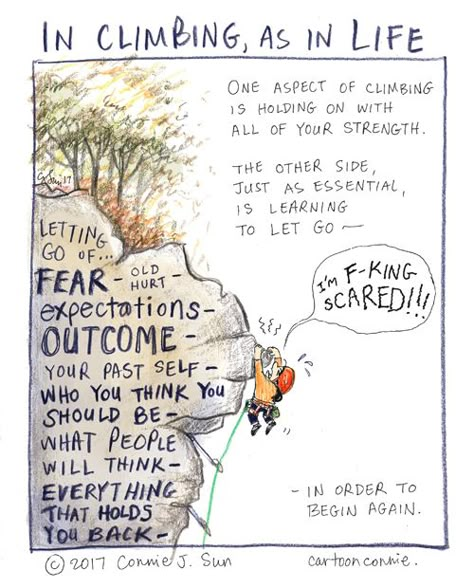 IN CLIMBING, AS IN LIFE
ONE ASPECT OF CLIMBING
IS HOLDING ON WITH
ALL OF YOUR STRENGTH.
THE OTHER SIDE,
JUST AS ESSENTIAL,
IS LEARNING
TO LET GO —
LETTING
GO OF...
FEAR - OLD HURT -
expectations-
OUTCOME -
YOUR PAST SELF -
WHO YOU THINK YOU
SHOULD BE -
WHAT PEOPLE
WILL THINK -
EVERYTHING
THAT HOLDS
YOU BACK -
I'M F-KING
SCARED!!!
- IN ORDER TO
BEGIN AGAIN.
© 2017 Connie J. Sun
cartoonconnie.